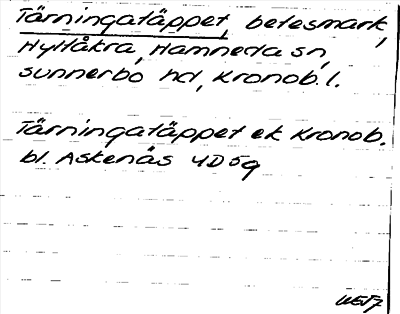 Tärningatäppet, betesmark,
Hyltåkra, Hamneda sn,
Sunnerbo hd, Kronob. l.
Tärningatäppet ek Kronob.
bl. Askenäs 4D5g